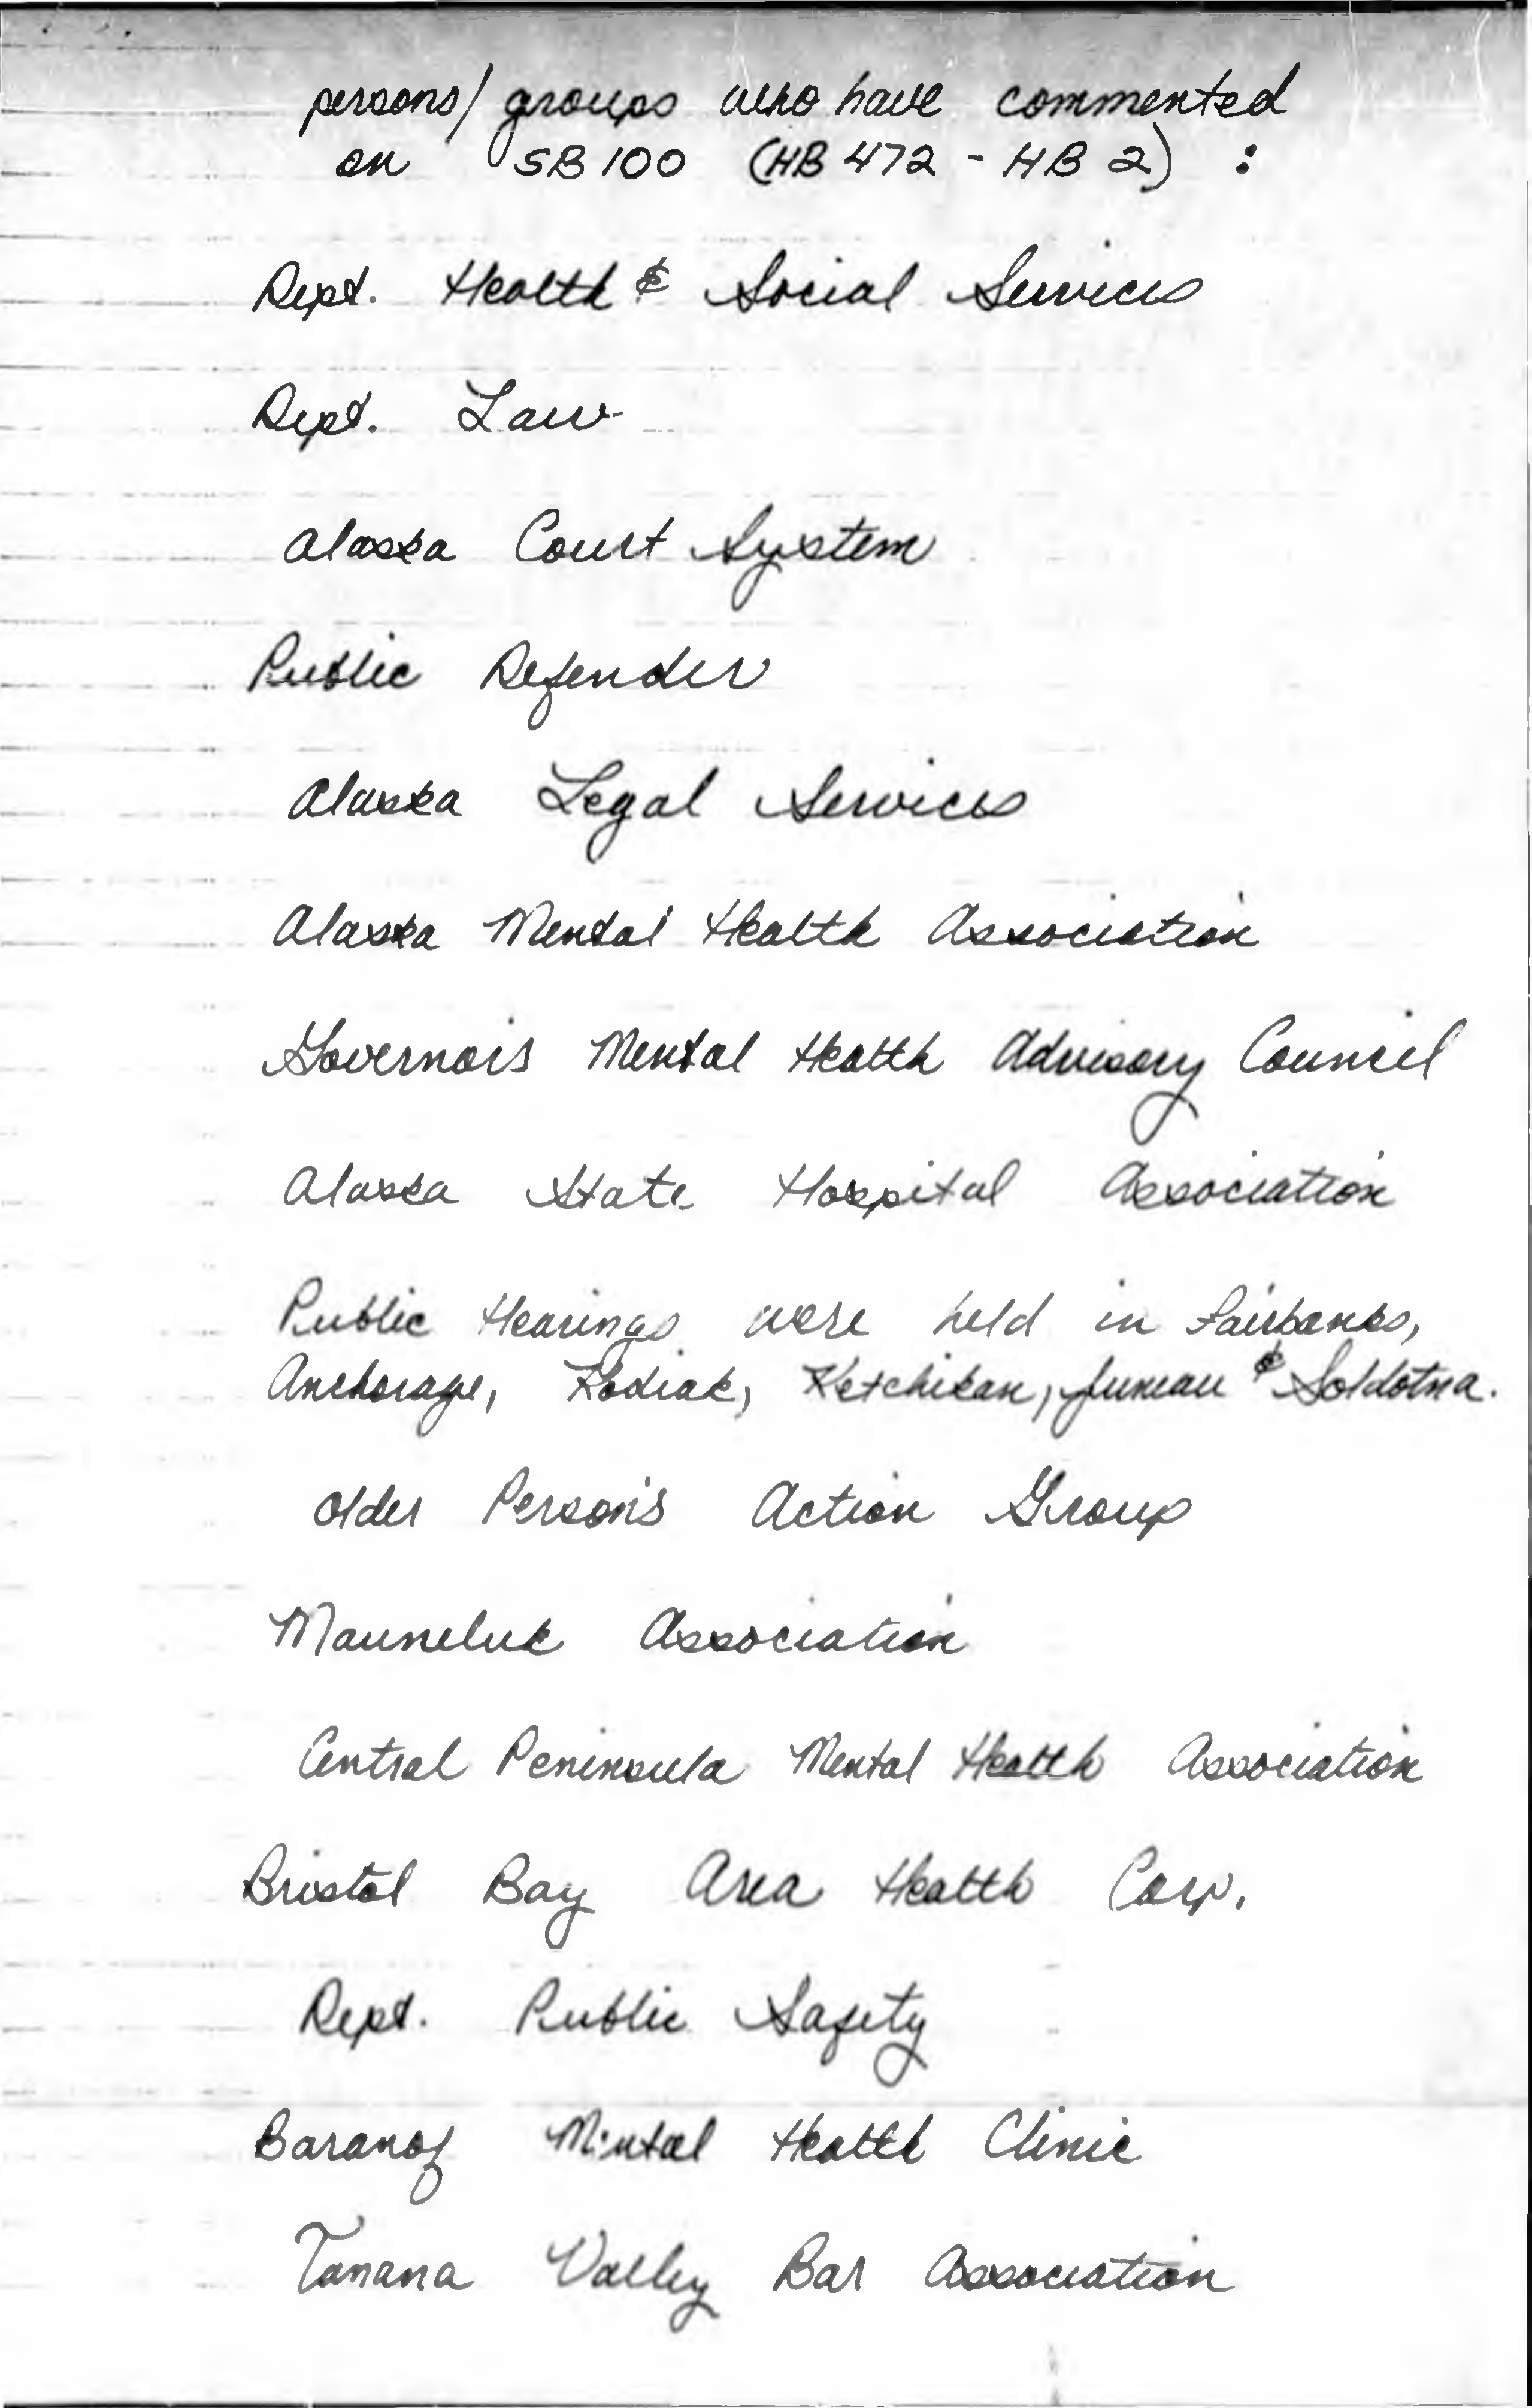 persons/groups who have commented
on SB 100 (HB 472 - HB 2) :
Dept. Health & Social Services
Dept. Law
Alaska Court System
Public Defender
Alaska Legal Services
Alaska Mental Health Association
Governor's Mental Health Advisory Council
Alaska State Hospital Association
Public Hearings were held in Fairbanks,
Anchorage, Kodiak, Ketchikan, Juneau & Soldotna.
Older Person's Action Group
Mauneluk Association
Central Peninsula Mental Health Association
Bristol Bay Area Health Corp.
Dept. Public Safety
Baranof Mental Health Clinic
Tanana Valley Bar Association